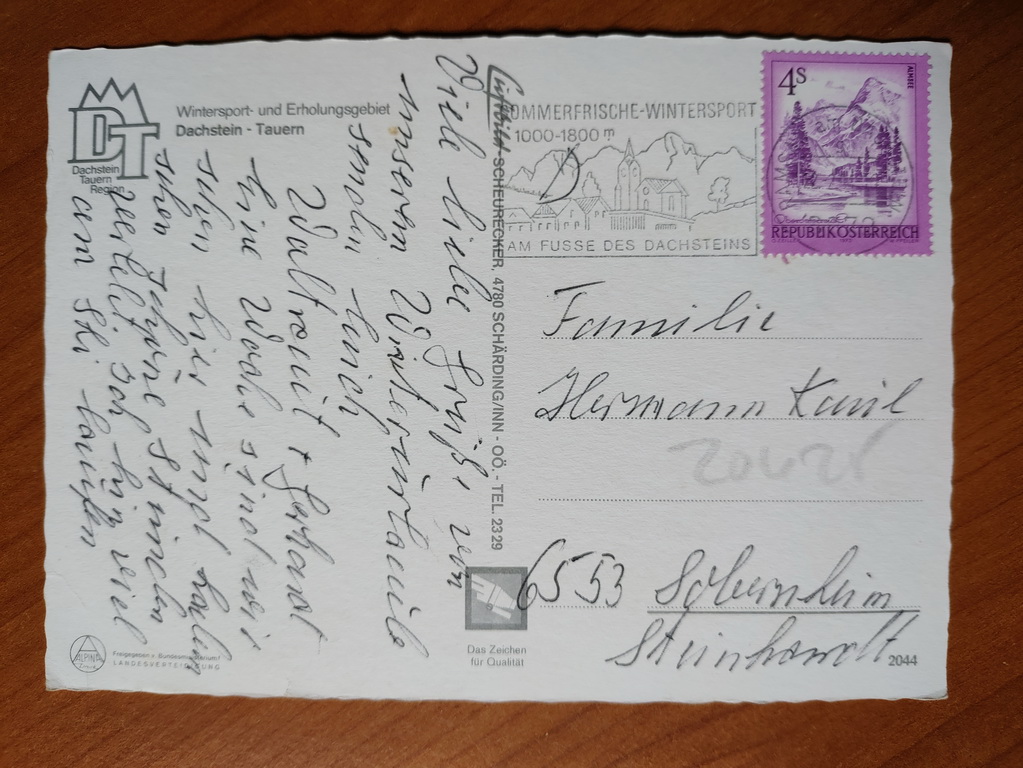 DT
Dachstein
Tauern
Region
Wintersport- und Erholungsgebiet
Dachstein - Tauern
Viele liebe Grüße von
unserem Winterurlaub
senden Euch
Waltraud +
Eine Woche sind wir
schon hier und haben
schon schöne Stunden
verlebt. Ich bin viel
Ski laufen
Luftbild SCHEURECKER, 4780 SCHÄRDING/INN - OÖ. - TEL. 23 29
SOMMERFRISCHE-WINTERSPORT
1000-1800 m
AM FUSSE DES DACHSTEINS
4 S
ALMSEE
REPUBLIK ÖSTERREICH
Familie
Hermann Karl
6553 Sobernheim
Steinhardt
2044
Das Zeichen
für Qualität
ALPINA
Druck
Freigegeben v. Bundesministerium f.
LANDESVERTEIDIGUNG